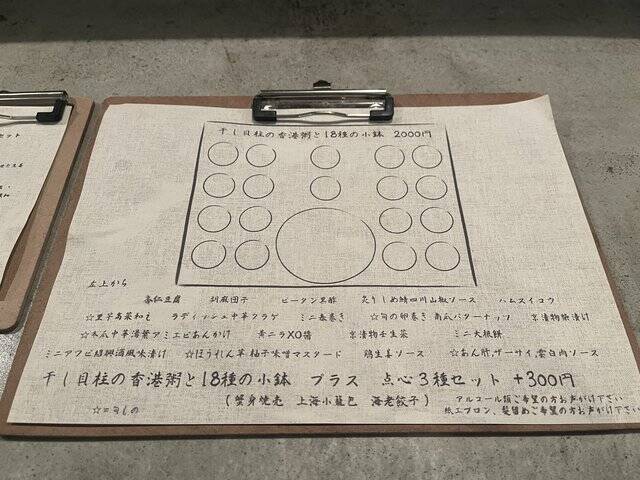 干し貝柱の香港粥と18種の小鉢 2000円
左上から
杏仁豆腐 胡麻団子 ピータン黒酢 炙りしめ鯖四川山椒ソース ハムスイコウ
☆里芋高菜和え ラディッシュ中華クラゲ ミニ春巻き ☆旬の卵巻き 南瓜バターナッツ 京漬物胡瓜漬け
☆木瓜中華湯葉アミエビあんかけ 黄ニラXO醤 京漬物壬生菜 ミニ大根餅
ミニアワビ紹興酒風味漬け ☆ほうれん草 柚子味噌マスタード 鶏生姜ソース ☆あん肝、ザーサイ、雲白肉ソース
干し貝柱の香港粥と18種の小鉢 プラス 点心3種セット +300円
(蟹身焼売 上海小籠包 海老餃子)
アルコール類ご希望の方お声がけ下さい
紙エプロン、髪留めご希望の方お声がけ下さい
☆=旬もの